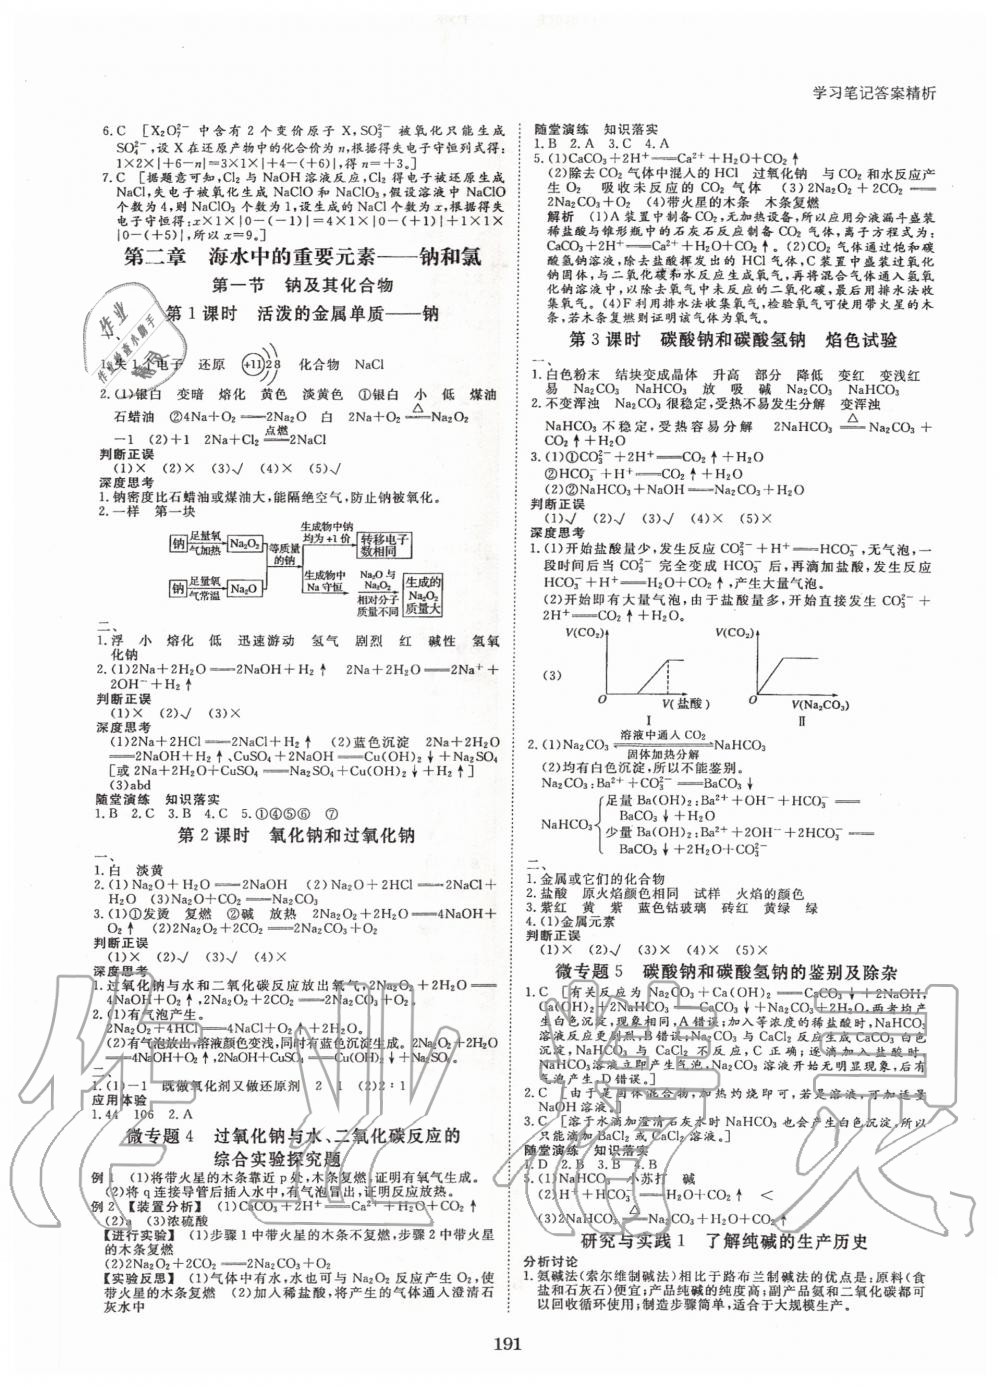 学习笔记答案精析
6.C [X₂O₂²⁻ 中含有 2 个变价原子 X,SO₃²⁻ 被氧化只能生成
SO₄²⁻,设 X 在还原产物中的化合价为 n,根据得失电子守恒列式得:
1×2×|+6-n|=3×1×|+4-(+6)|,得 n=+3。]
7.C [据题意可知,Cl₂ 与 NaOH 溶液反应,Cl₂ 得电子被还原生成
NaCl,失电子被氧化生成 NaClO 和 NaClO₃,假设溶液中 NaClO
个数为 4,则 NaClO₃ 个数为 1,设生成的 NaCl 个数为 x,根据得失
电子守恒得:x×1×|0-(-1)|=4×1×|0-(+1)|+1×1×
|0-(+5)|,所以 x=9。]
第二章 海水中的重要元素——钠和氯
第一节 钠及其化合物
第 1 课时 活泼的金属单质——钠
一、
1.失 1 个电子 还原 +11 2 8 化合物 NaCl
2.(1)银白 变暗 熔化 黄色 淡黄色 ①银白 小 低 煤油
石蜡油 ②4Na+O₂══2Na₂O 白 2Na+O₂══△══Na₂O₂
-1 (2)+1 2Na+Cl₂══点燃══2NaCl
判断正误
(1)× (2)× (3)√ (4)× (5)√
深度思考
1.钠密度比石蜡油或煤油大,能隔绝空气,防止钠被氧化。
2.一样 第一块
钠 足量氧气加热 Na₂O₂ 等质量的钠 生成物中钠均为+1价 转移电子数相同
钠 足量氧气常温 Na₂O 生成物中Na守恒 Na₂O与Na₂O₂相对分子质量不同 生成的Na₂O₂质量大
二、
1.浮 小 熔化 低 迅速游动 氢气 剧烈 红 碱性 氢氧
化钠
2.(1)2Na+2H₂O══2NaOH+H₂↑ 2Na+2H₂O══2Na⁺+
2OH⁻+H₂↑
判断正误
(1)× (2)√ (3)×
深度思考
(1)2Na+2HCl══2NaCl+H₂↑ (2)蓝色沉淀 2Na+2H₂O
══2NaOH+H₂↑、CuSO₄+2NaOH══Cu(OH)₂↓+Na₂SO₄
[或 2Na+2H₂O+CuSO₄══Na₂SO₄+Cu(OH)₂↓+H₂↑]
(3)abd
随堂演练 知识落实
1.B 2.C 3.B 4.C 5.①④⑤⑥ ⑦
第 2 课时 氧化钠和过氧化钠
一、
1.白 淡黄
2.(1)Na₂O+H₂O══2NaOH (2)Na₂O+2HCl══2NaCl+
H₂O (3)Na₂O+CO₂══Na₂CO₃
3.(1)①发烫 复燃 ②碱 放热 2Na₂O₂+2H₂O══4NaOH+
O₂↑ (2)2Na₂O₂+2CO₂══2Na₂CO₃+O₂
判断正误
(1)× (2)√ (3)√ (4)×
深度思考
1.过氧化钠与水和二氧化碳反应放出氧气,2Na₂O₂+2H₂O══
4NaOH+O₂↑、2Na₂O₂+2CO₂══2Na₂CO₃+O₂
2.(1)有气泡产生。
2Na₂O₂+4HCl══4NaCl+O₂↑+2H₂O
(2)有气泡放出,溶液颜色变浅,同时有蓝色沉淀生成。2Na₂O₂+2H₂O
══4NaOH+O₂↑、2NaOH+CuSO₄══Cu(OH)₂↓+Na₂SO₄
二、
1.(1)-1 既做氧化剂又做还原剂 2 1 (2)2∶1
应用体验
1.44 106 2.A
微专题 4 过氧化钠与水、二氧化碳反应的
综合实验探究题
例 1 (1)将带火星的木条靠近 p 处,木条复燃,证明有氧气生成。
(2)将 q 连接导管后插入水中,有气泡冒出,证明反应放热。
例 2 【装置分析】 (1)CaCO₃+2H⁺══Ca²⁺+H₂O+CO₂↑
(2)a (3)浓硫酸
【进行实验】 (1)步骤 1 中带火星的木条不复燃,步骤 2 中带火星
的木条复燃
(2)2Na₂O₂+2CO₂══2Na₂CO₃+O₂
【实验反思】 (1)气体中有水,水也可与 Na₂O₂ 反应产生 O₂,使
带火星的木条复燃 (2)加入稀盐酸,将产生的气体通入澄清石
灰水中
随堂演练 知识落实
1.B 2.A 3.C 4.A
5.(1)CaCO₃+2H⁺══Ca²⁺+H₂O+CO₂↑
(2)除去 CO₂ 气体中混入的 HCl 过氧化钠 与 CO₂ 和水反应产
生 O₂ 吸收未反应的 CO₂ 气体 (3)2Na₂O₂+2CO₂══
2Na₂CO₃+O₂ (4)带火星的木条 木条复燃
解析 (1)A 装置中制备 CO₂,无加热设备,所以应用分液漏斗盛装
稀盐酸与锥形瓶中的石灰石反应制备 CO₂ 气体,离子方程式为:
CaCO₃+2H⁺══Ca²⁺+H₂O+CO₂↑。(2)CO₂ 气体通过饱和碳
酸氢钠溶液,除去盐酸挥发出的 HCl 气体,C 装置中盛装过氧化
钠固体,与二氧化碳和水反应生成氧气,再将混合气体通入氢氧
化钠溶液中,以除去氧气中未反应的二氧化碳,最后用排水法收
集氧气。(4)F 利用排水法收集氧气,检验氧气可使用带火星的木
条,若木条复燃则证明该气体为氧气。
第 3 课时 碳酸钠和碳酸氢钠 焰色试验
一、
1.白色粉末 结块变成晶体 升高 部分 降低 变红 变浅红
易 Na₂CO₃ NaHCO₃ 放 吸 碱 Na₂CO₃ NaHCO₃
2.不变浑浊 Na₂CO₃ 很稳定,受热不易发生分解 变浑浊
NaHCO₃ 不稳定,受热容易分解 2NaHCO₃══△══Na₂CO₃+
CO₂↑+H₂O
3.(1)①CO₃²⁻+2H⁺══CO₂↑+H₂O
②HCO₃⁻+H⁺══CO₂↑+H₂O
(2)②NaHCO₃+NaOH══Na₂CO₃+H₂O
判断正误
(1)√ (2)√ (3)√ (4)× (5)×
深度思考
1.(1)开始盐酸量少,发生反应 CO₃²⁻+H⁺══HCO₃⁻,无气泡,一
段时间后当 CO₃²⁻ 完全变成 HCO₃⁻ 后,再滴加盐酸,发生反应
HCO₃⁻+H⁺══H₂O+CO₂↑,产生大量气泡。
(2)开始即有大量气泡,由于盐酸量多,开始直接发生 CO₃²⁻+
2H⁺══CO₂↑+H₂O。
(3) V(CO₂) O V(盐酸) Ⅰ V(CO₂) O V(Na₂CO₃) Ⅱ
2.(1)Na₂CO₃ 溶液中通入 CO₂ 固体加热分解 NaHCO₃
(2)均有白色沉淀,所以不能鉴别。
Na₂CO₃:Ba²⁺+CO₃²⁻══BaCO₃↓
NaHCO₃
足量 Ba(OH)₂:Ba²⁺+OH⁻+HCO₃⁻══
BaCO₃↓+H₂O
少量 Ba(OH)₂:Ba²⁺+2OH⁻+2HCO₃⁻══
BaCO₃↓+2H₂O+CO₃²⁻
二、
1.金属或它们的化合物
2.盐酸 原火焰颜色相同 试样 火焰的颜色
3.紫红 黄 紫 蓝色钴玻璃 砖红 黄绿 绿
4.(1)金属元素
判断正误
(1)× (2)√ (3)× (4)× (5)×
微专题 5 碳酸钠和碳酸氢钠的鉴别及除杂
1.C [有关反应为 Na₂CO₃+Ca(OH)₂══CaCO₃↓+2NaOH,
Ca(OH)₂+2NaHCO₃══CaCO₃↓+Na₂CO₃+2H₂O,两者均产
生白色沉淀,现象相同,A 错误;加入等浓度的稀盐酸时,NaHCO₃
溶液反应更剧烈,B 错误;Na₂CO₃ 与 CaCl₂ 反应生成 CaCO₃ 白色
沉淀,NaHCO₃ 与 CaCl₂ 不反应,C 正确;逐滴加入盐酸时,
NaHCO₃ 溶液立即产生气泡,Na₂CO₃ 溶液开始无明显现象,后有
气泡产生,D 错误。]
2.C [由于是固体混合物,加热灼烧即可,若是溶液,可加适量
NaOH 溶液。]
3.C [溶于水加澄清石灰水时 NaHCO₃ 也会产生白色沉淀,所以
只能滴加 BaCl₂ 或 CaCl₂ 溶液。]
随堂演练 知识落实
1.D 2.B 3.B 4.B
5.(1)NaHCO₃ 小苏打 碱
(2)H⁺+HCO₃⁻══H₂O+CO₂↑ <
(3)2NaHCO₃══△══Na₂CO₃+H₂O+CO₂↑
研究与实践 1 了解纯碱的生产历史
分析讨论
1.氨碱法(索尔维制碱法)相比于路布兰制碱法的优点是:原料(食
盐和石灰石)便宜;产品纯碱的纯度高;副产品氨和二氧化碳都可
以回收循环使用;制造步骤简单,适合于大规模生产。
191